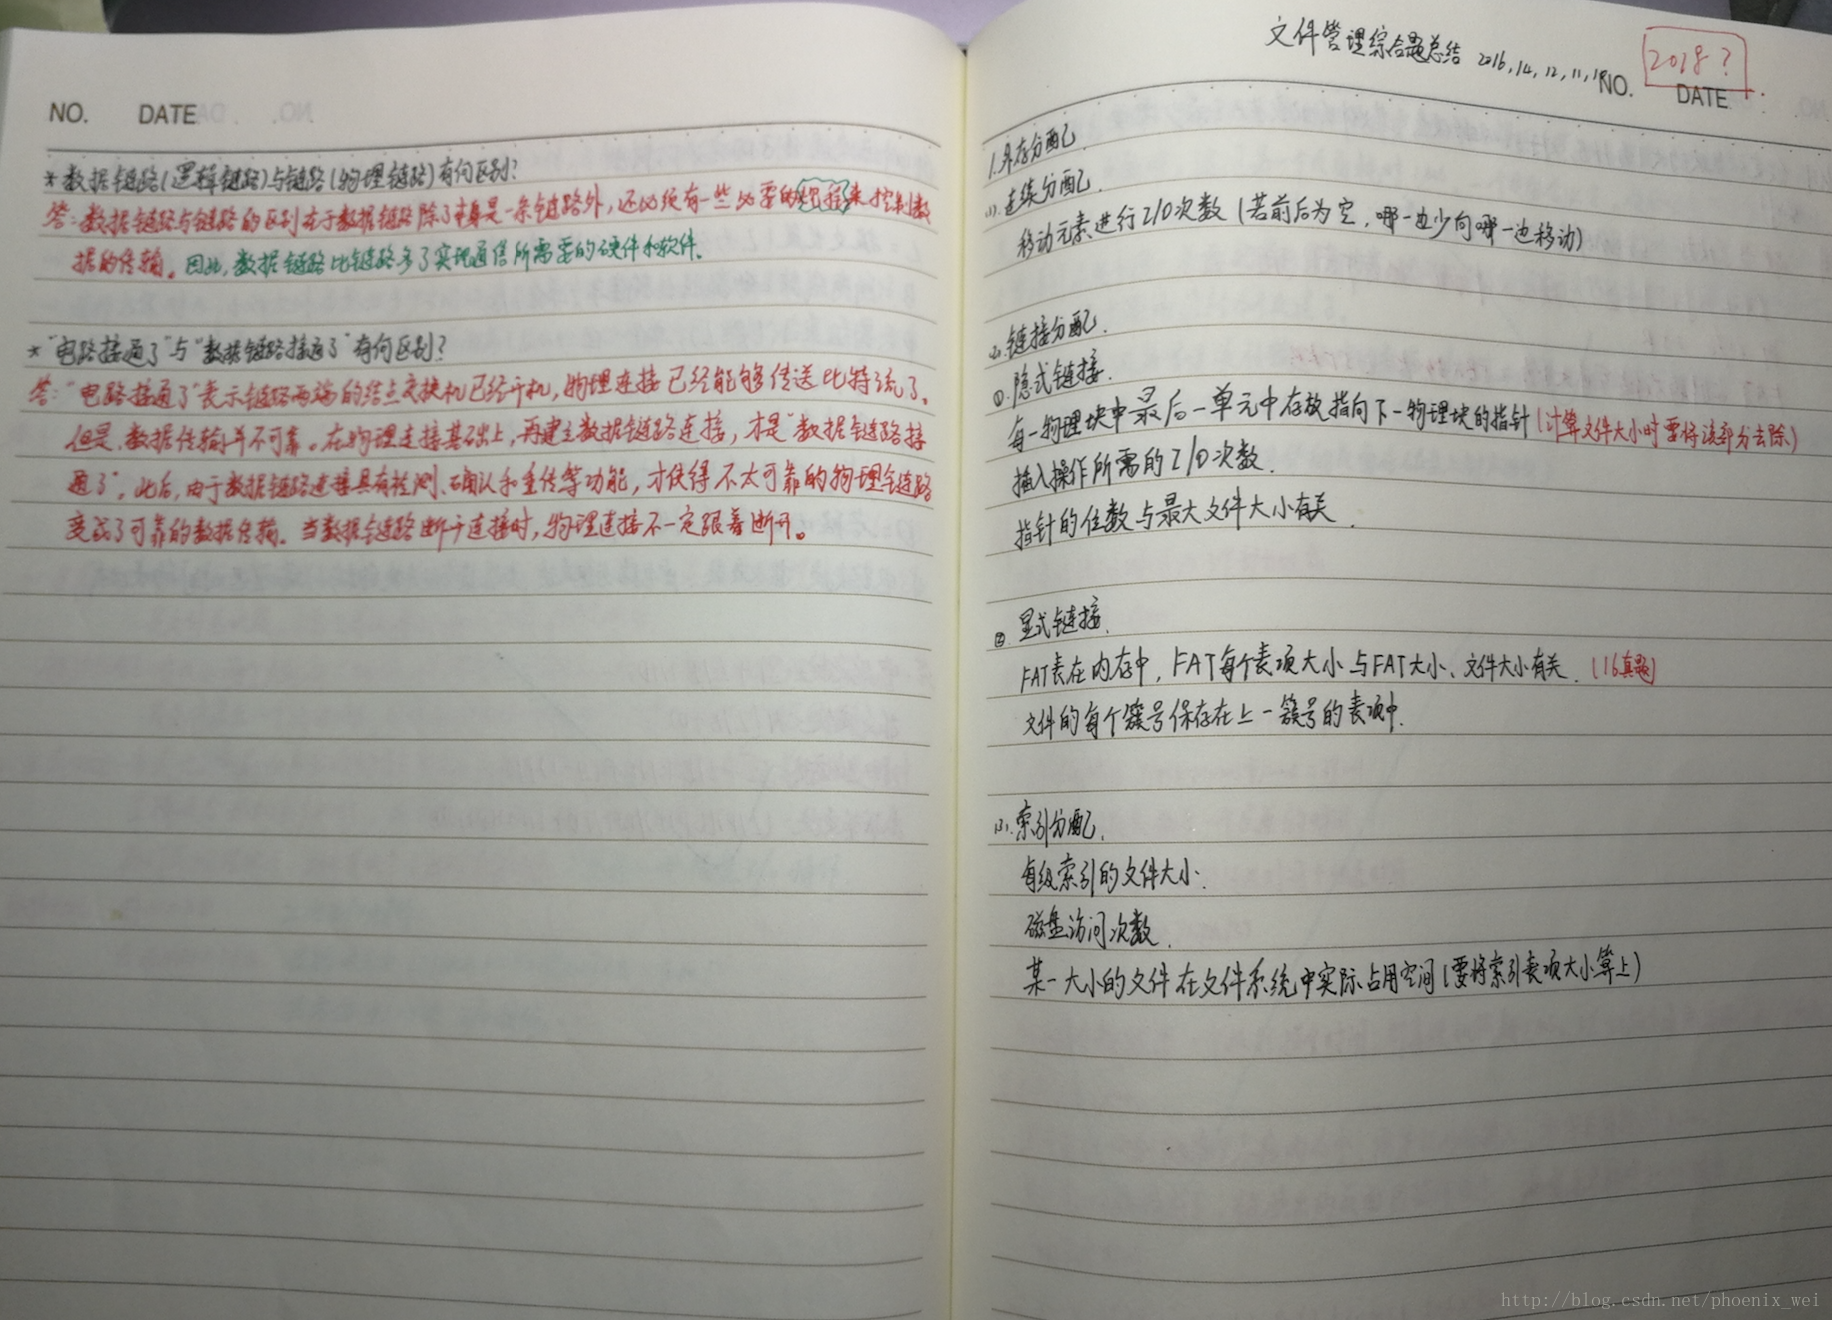 NO. DATE
* 数据链路(逻辑链路)与链路(物理链路)有何区别?
答:数据链路与链路的区别在于数据链路除了本身是一条链路外,还必须有一些必要的规程来控制数
据的传输。因此,数据链路比链路多了实现通信所需要的硬件和软件.
* "电路接通了"与"数据链路接通了"有何区别?
答:"电路接通了"表示链路两端的结点交换机已经开机,物理连接已经能够传送比特流了。
但是,数据传输并不可靠。在物理连接基础上,再建立数据链路连接,才是"数据链路接
通了"。此后,由于数据链路连接具有检测、确认和重传等功能,才使得不太可靠的物理链路
变成了可靠的数据传输。当数据链路断开连接时,物理连接不一定跟着断开。
文件管理综合题总结 2016,14,12,11,
2018?
NO. DATE
1.外存分配.
(1).连续分配.
移动元素进行I/O次数(若前后为空,哪一边少向哪一边移动)
(2).链接分配.
①.隐式链接.
每一物理块中最后一单元中存放指向下一物理块的指针(计算文件大小时要将该部分去除)
插入操作所需的I/O次数.
指针的位数与最大文件大小有关.
②.显式链接.
FAT表在内存中,FAT每个表项大小与FAT大小、文件大小有关.(16真题)
文件的每个簇号保存在上一簇号的表项中.
(3).索引分配.
每级索引的文件大小.
磁盘访问次数.
某一大小的文件在文件系统中实际占用空间(要将索引表项大小算上)
http://blog.csdn.net/phoenix_wei